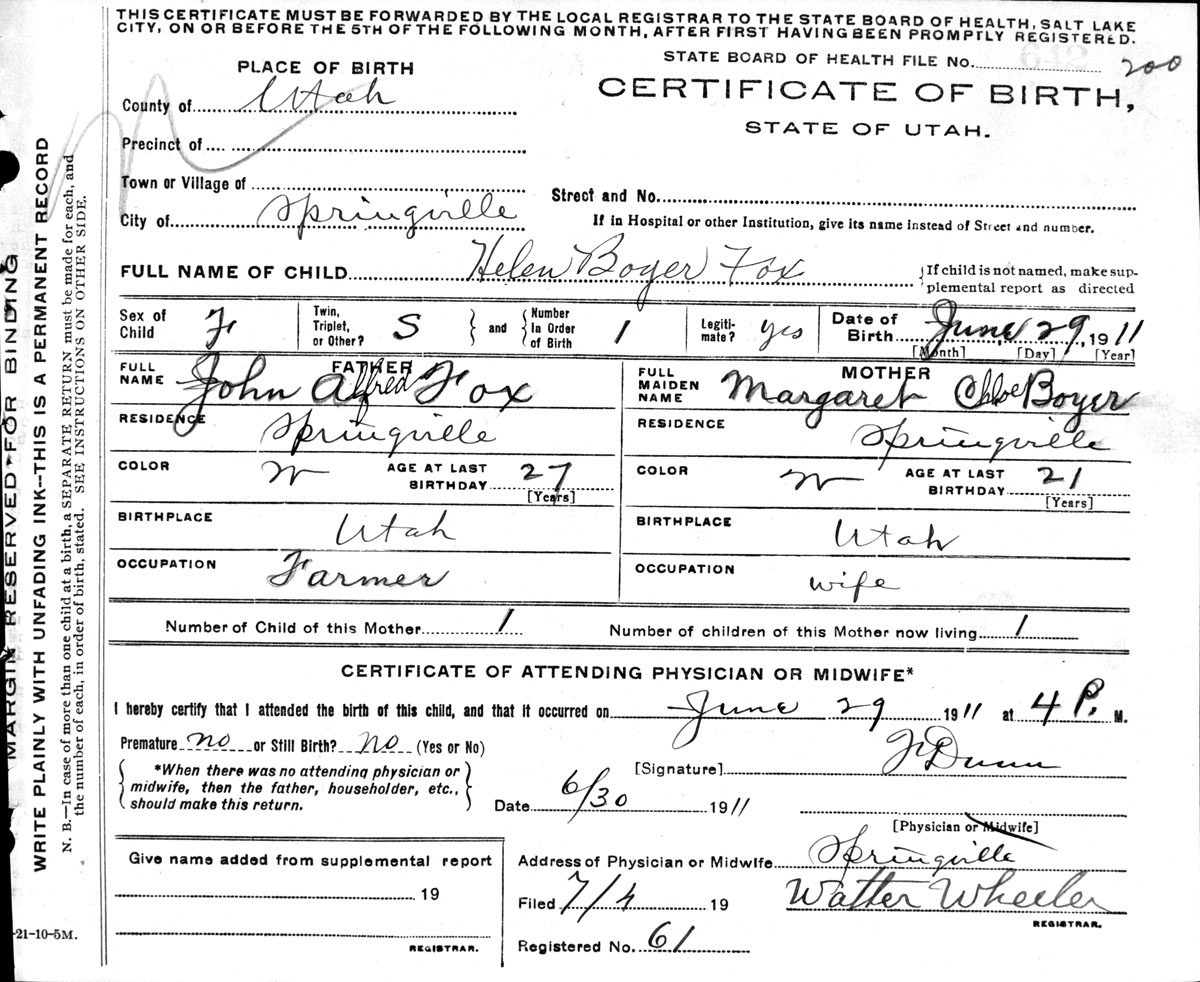 THIS CERTIFICATE MUST BE FORWARDED BY THE LOCAL REGISTRAR TO THE STATE BOARD OF HEALTH, SALT LAKE
CITY, ON OR BEFORE THE 5TH OF THE FOLLOWING MONTH, AFTER FIRST HAVING BEEN PROMPTLY REGISTERED.
STATE BOARD OF HEALTH FILE No. 642 200
PLACE OF BIRTH
CERTIFICATE OF BIRTH,
STATE OF UTAH.
County of Utah
Precinct of
Town or Village of
Street and No.
City of Springville
If in Hospital or other Institution, give its name instead of Street and number.
FULL NAME OF CHILD Helen Boyer Fox
{If child is not named, make sup-
plemental report as directed
Sex of Child F
Twin, Triplet, or Other? S
and
Number In Order of Birth 1
Legiti-mate? yes
Date of Birth June 29, 1911
[Month] [Day] [Year]
FATHER
FULL NAME John Alfred Fox
MOTHER
FULL MAIDEN NAME Margaret Chloe Boyer
RESIDENCE Springville
RESIDENCE Springville
COLOR W AGE AT LAST BIRTHDAY 27
[Years]
COLOR W AGE AT LAST BIRTHDAY 21
[Years]
BIRTHPLACE Utah
BIRTHPLACE Utah
OCCUPATION Farmer
OCCUPATION wife
Number of Child of this Mother 1 Number of children of this Mother now living 1
CERTIFICATE OF ATTENDING PHYSICIAN OR MIDWIFE*
I hereby certify that I attended the birth of this child, and that it occurred on June 29 1911 at 4 P. M.
Premature no or Still Birth? No (Yes or No)
*When there was no attending physician or
midwife, then the father, householder, etc.,
should make this return.
[Signature] Dunn
Date 6/30 1911
[Physician or Midwife]
Give name added from supplemental report
19
REGISTRAR.
Address of Physician or Midwife Springville
Filed 7/4 19 Walter Wheeler
REGISTRAR.
Registered No. 61
MARGIN RESERVED FOR BINDING
WRITE PLAINLY WITH UNFADING INK--THIS IS A PERMANENT RECORD
N. B.—In case of more than one child at a birth, a SEPARATE RETURN must be made for each, and
the number of each, in order of birth, stated. SEE INSTRUCTIONS ON OTHER SIDE.
-21-10-5M.